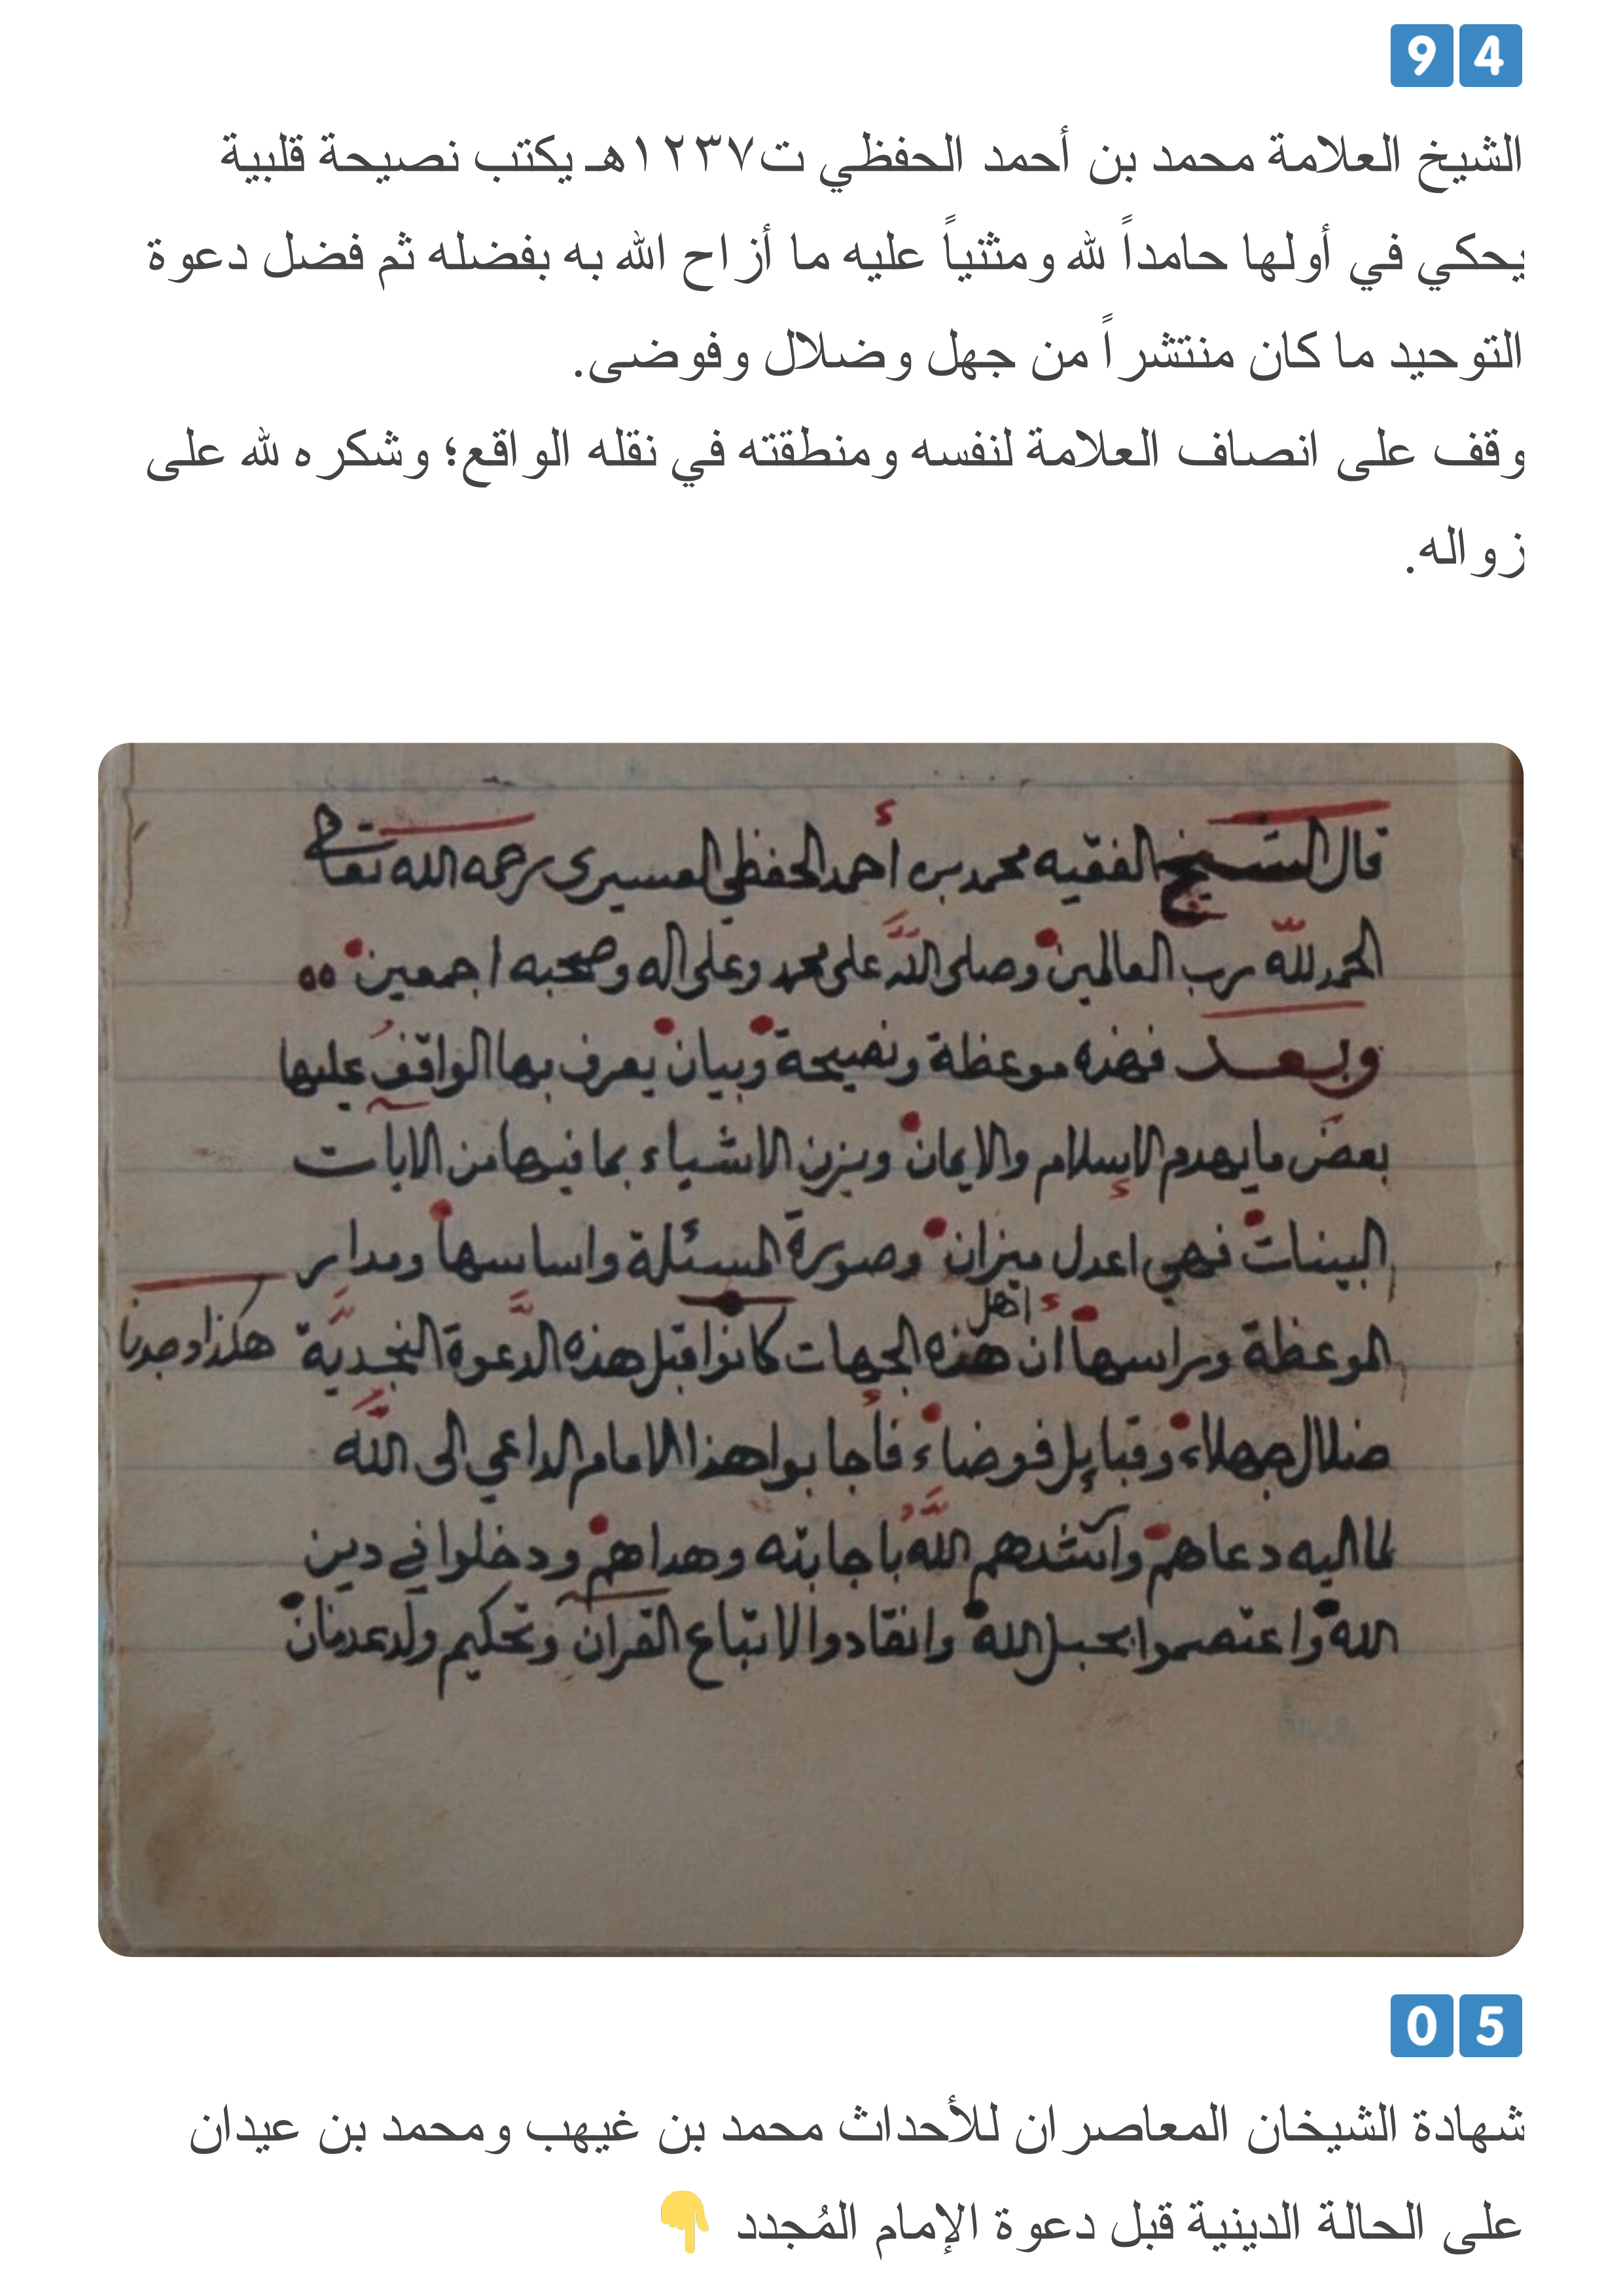 94
الشيخ العلامة محمد بن أحمد الحفظي ت١٢٣٧هـ يكتب نصيحة قلبية
يحكي في أولها حامداً لله ومثنياً عليه ما أزاح الله به بفضله ثم فضل دعوة
التوحيد ما كان منتشراً من جهل وضلال وفوضى.
وقف على انصاف العلامة لنفسه ومنطقته في نقله الواقع؛ وشكره لله على
زواله.
قال الشيخ الفقيه محمد بن أحمد الحفظي العسيري رحمه الله تعالى
الحمد لله رب العالمين وصلى الله على محمد وعلى اله وصحبه اجمعين
وبعد فهذه موعظة ونصيحة وبيان يعرف بها الواقف عليها
بعض ما يهدم الإسلام والايمان ويزن الاشياء بما فيها من الآيات
البينات فهي اعدل ميزان وصورة المسئلة واساسها ومدار
الموعظة وراسها أن اهل هذه الجهات كانوا قبل هذه الدعوة النجديَّة
هكذا وجدنا
ضلال جهلاء وقبايل فوضاء فأجابوا هذا الامام الداعي الى الله
لما اليه دعاهم وارشدهم الله باجابته وهداهم ودخلوا في دين
الله واعتصموا بحبل الله وانقادوا لاتباع القرآن وتحكيم ولد عدنان
05
شهادة الشيخان المعاصران للأحداث محمد بن غيهب ومحمد بن عيدان
على الحالة الدينية قبل دعوة الإمام المُجدد 👇